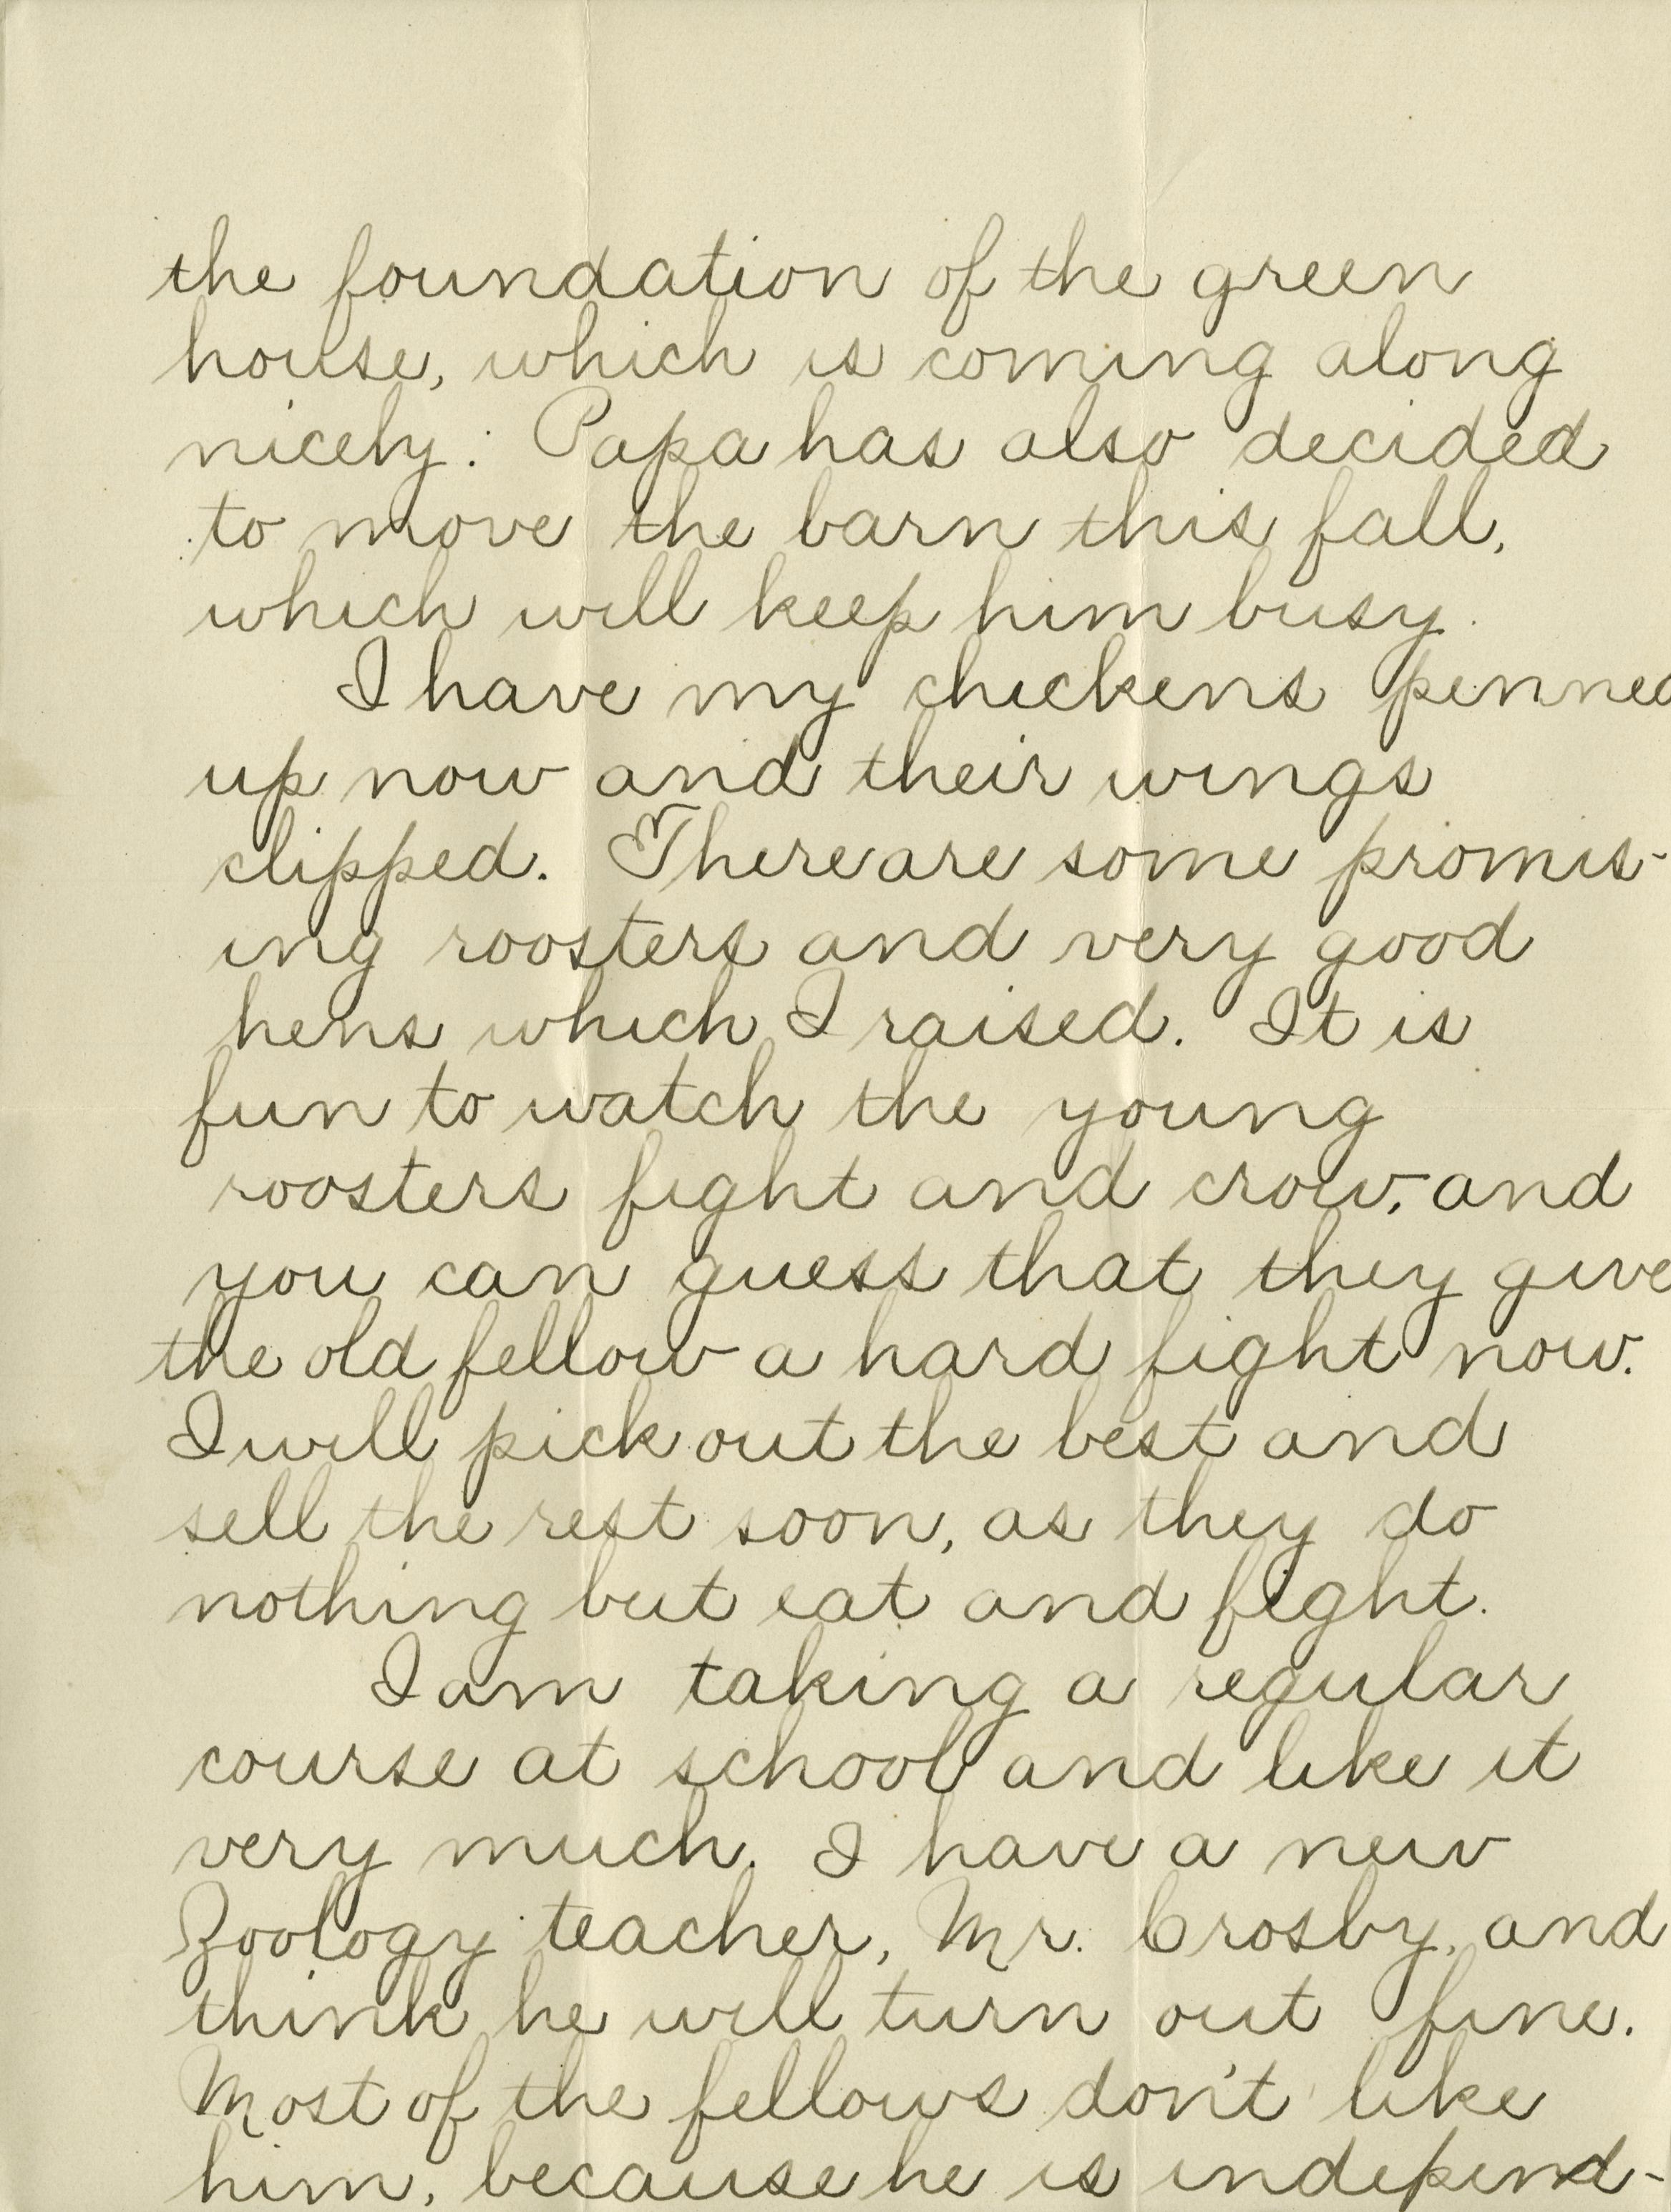 the foundation of the green
house, which is coming along
nicely. Papa has also decided
to move the barn this fall,
which will keep him busy.
I have my chickens penned
up now and their wings
clipped. There are some promis-
ing roosters and very good
hens which I raised. It is
fun to watch the young
roosters fight and crow, and
you can guess that they give
the old fellow a hard fight now.
I will pick out the best and
sell the rest soon, as they do
nothing but eat and fight.
I am taking a regular
course at school and like it
very much. I have a new
Zoology teacher, Mr. Crosby, and
think he will turn out fine.
Most of the fellows don't like
him, because he is independ-